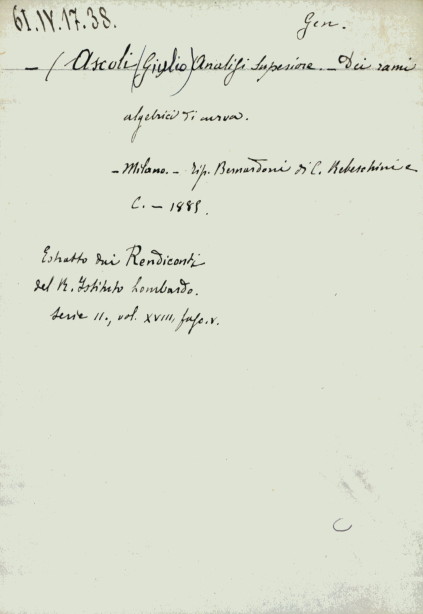 61.IV.17.38.
Gen.
- (Ascoli (Giulio) Analisi Superiore. - Dei rami
algebrici di curva.
- Milano. - Tip. Bernardoni di C. Rebeschini e
C. - 1885.
Estratto dai Rendiconti
del R. Istituto Lombardo.
Serie II., vol. XVIII, fasc. V.